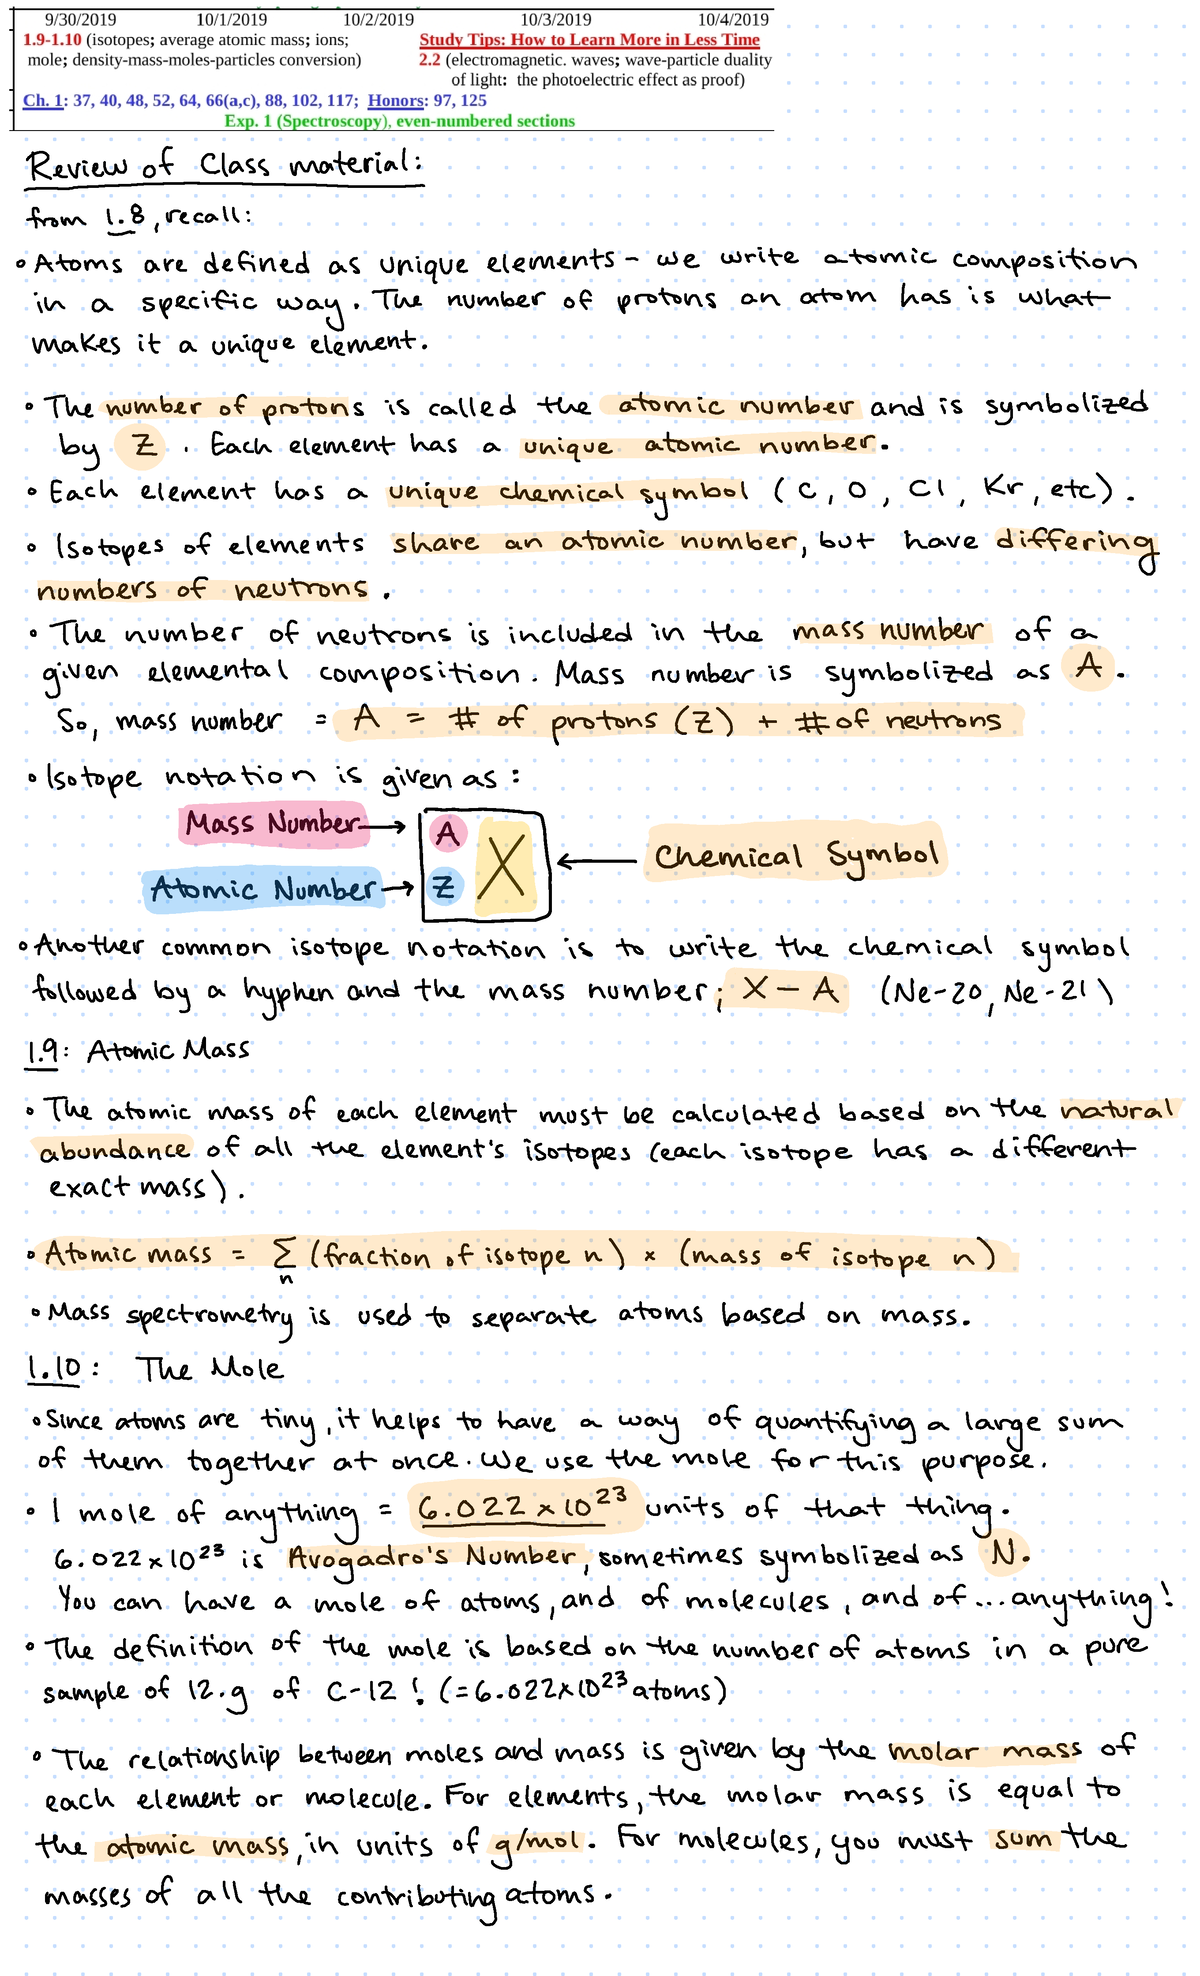 9/30/2019 10/1/2019 10/2/2019 10/3/2019 10/4/2019
1.9-1.10 (isotopes; average atomic mass; ions; Study Tips: How to Learn More in Less Time
mole; density-mass-moles-particles conversion) 2.2 (electromagnetic. waves; wave-particle duality
of light: the photoelectric effect as proof)
Ch. 1: 37, 40, 48, 52, 64, 66(a,c), 88, 102, 117; Honors: 97, 125
Exp. 1 (Spectroscopy), even-numbered sections
Review of Class material:
from 1.8, recall:
• Atoms are defined as unique elements - we write atomic composition
in a specific way. The number of protons an atom has is what
makes it a unique element.
• The number of protons is called the atomic number and is symbolized
by Z. Each element has a unique atomic number.
• Each element has a unique chemical symbol (C, O, Cl, Kr, etc).
• Isotopes of elements share an atomic number, but have differing
numbers of neutrons.
• The number of neutrons is included in the mass number of a
given elemental composition. Mass number is symbolized as A.
So, mass number = A = # of protons (Z) + # of neutrons
• Isotope notation is given as:
Mass Number → A X ← Chemical Symbol
Atomic Number → Z
• Another common isotope notation is to write the chemical symbol
followed by a hyphen and the mass number; X - A (Ne-20, Ne-21)
1.9: Atomic Mass
• The atomic mass of each element must be calculated based on the natural
abundance of all the element's isotopes (each isotope has a different
exact mass).
• Atomic mass = Σ (fraction of isotope n) × (mass of isotope n)
n
• Mass spectrometry is used to separate atoms based on mass.
1.10: The Mole
• Since atoms are tiny, it helps to have a way of quantifying a large sum
of them together at once. We use the mole for this purpose.
• 1 mole of anything = 6.022 × 10²³ units of that thing.
6.022 × 10²³ is Avogadro's Number, sometimes symbolized as N.
You can have a mole of atoms, and of molecules, and of ... anything!
• The definition of the mole is based on the number of atoms in a pure
sample of 12.g of C-12! (= 6.022×10²³ atoms)
• The relationship between moles and mass is given by the molar mass of
each element or molecule. For elements, the molar mass is equal to
the atomic mass, in units of g/mol. For molecules, you must sum the
masses of all the contributing atoms.